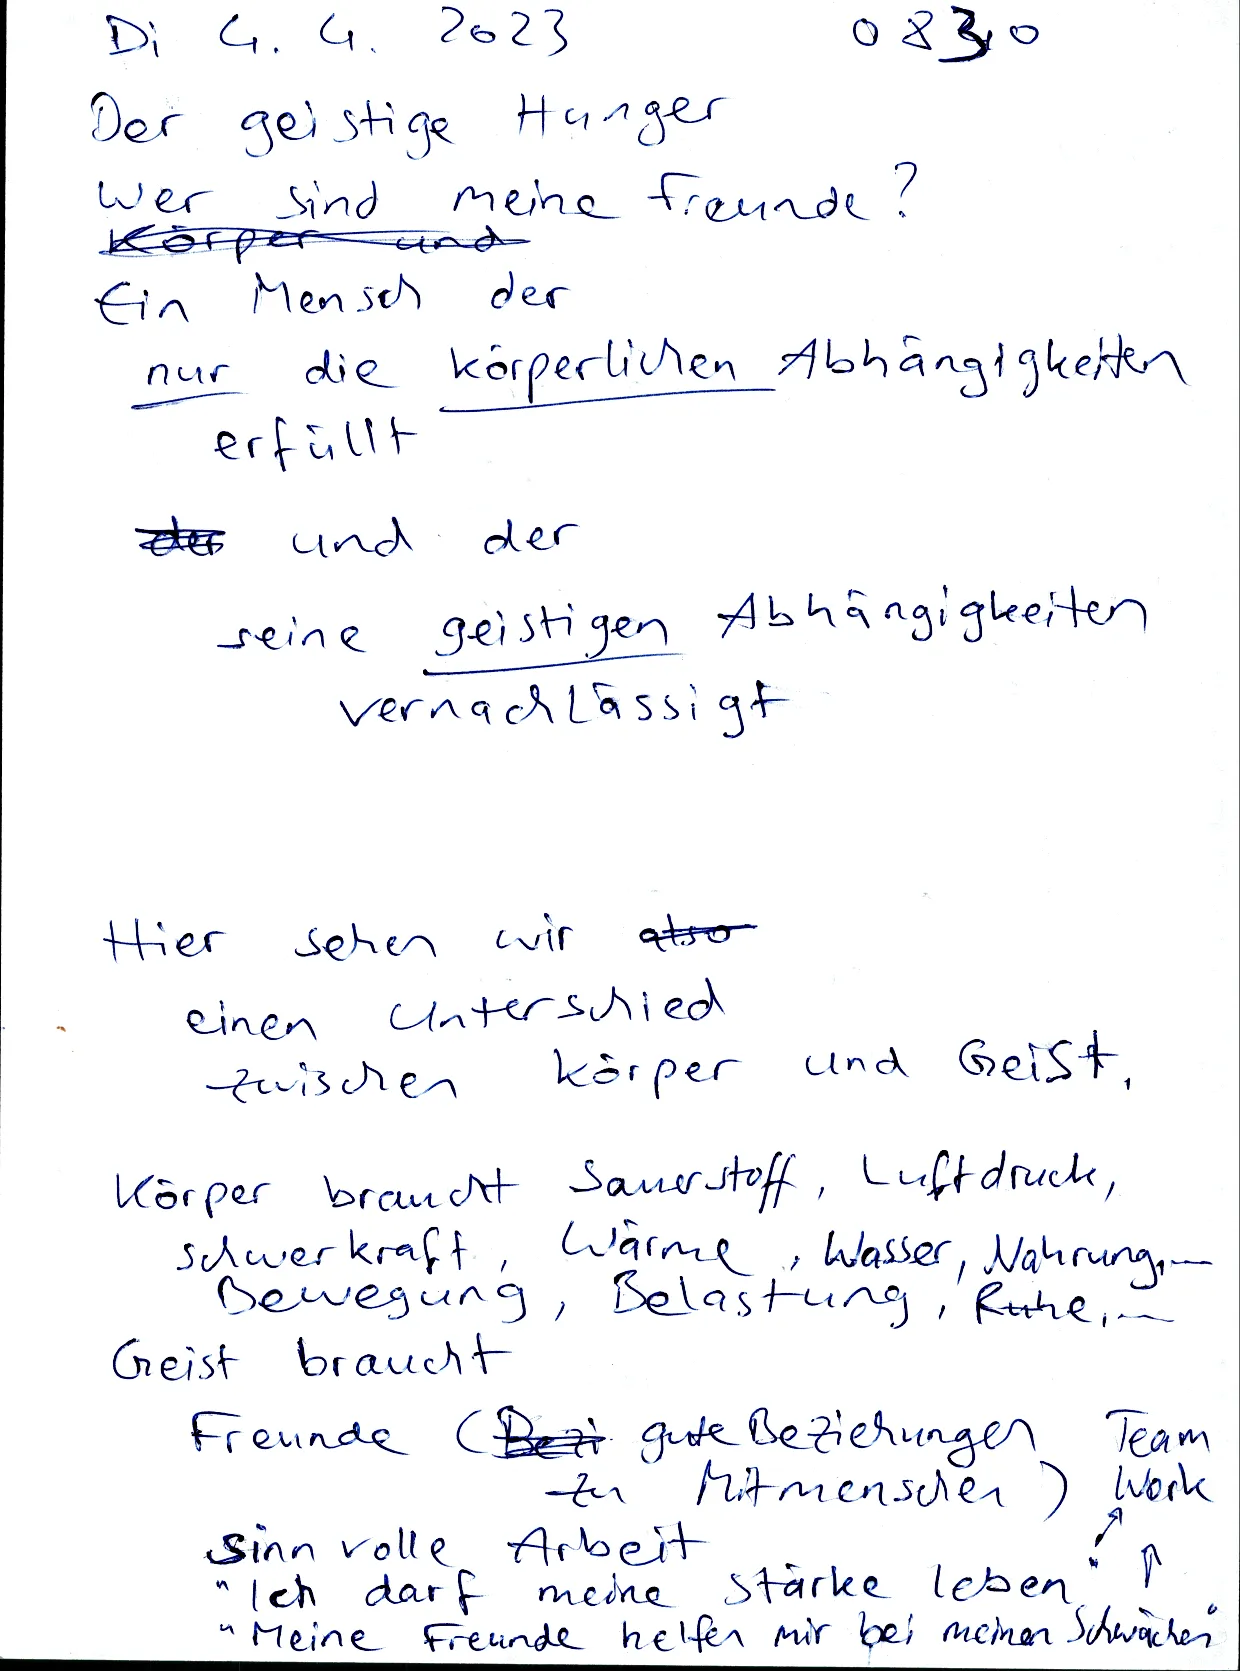 Di 4. 4. 2023 0830
Der geistige Hunger
Wer sind meine Freunde?
Körper und
Ein Mensch der
nur die körperlichen Abhängigkeiten
erfüllt
der und der
seine geistigen Abhängigkeiten
vernachlässigt
Hier sehen wir also
einen Unterschied
zwischen Körper und Geist.
Körper braucht Sauerstoff, Luftdruck,
Schwerkraft, Wärme, Wasser, Nahrung,...
Bewegung, Belastung, Ruhe,...
Geist braucht
Freunde (Bezi gute Beziehungen Team
zu Mitmenschen) Work
sinnvolle Arbeit
"Ich darf meine Stärke leben"
"Meine Freunde helfen mir bei meinen Schwächen"